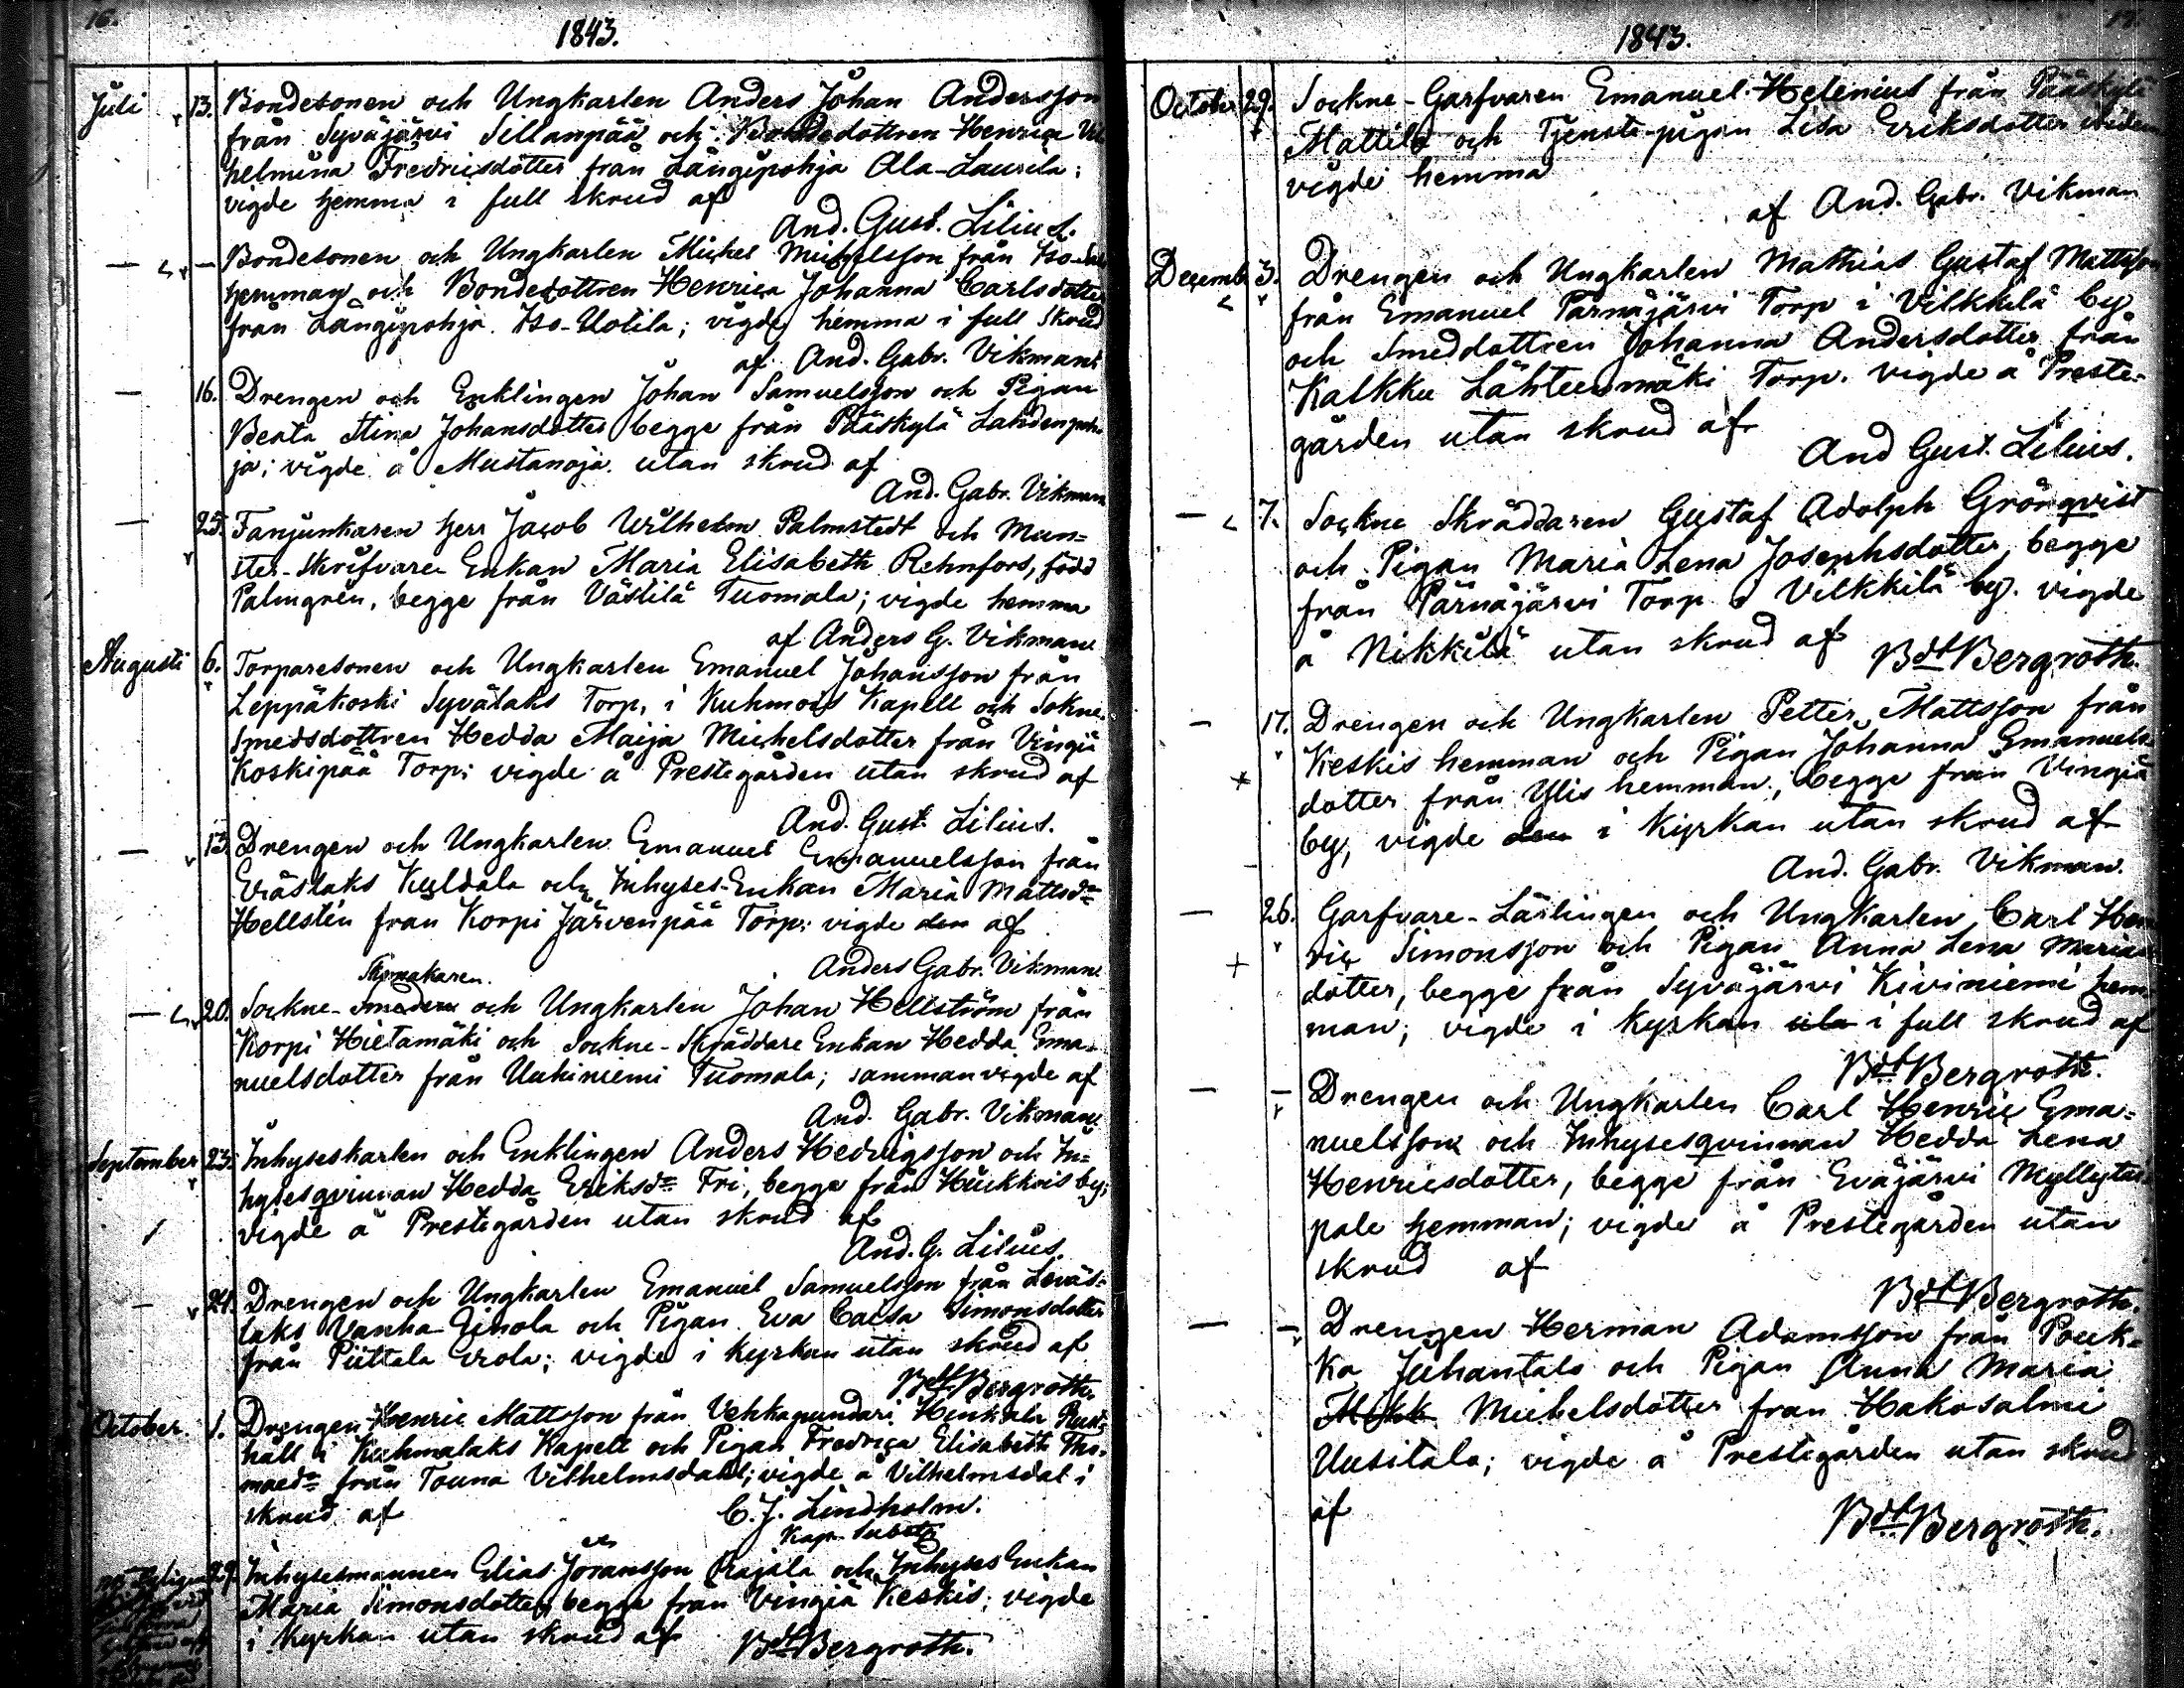 16.
1843.
Juli 13. Bondesonen och Ungkarlen Anders Johan Andersson
från Syväjärvi Sillanpää och Bondedottren Henrica Vil
helmina Fredricsdotter från Längipohja Ala-Laurila;
vigde hemma i full skrud af
And. Gust. Lilius.
— — Bondesonen och Ungkarlen Michel Michelsson från Iso
hemman och Bondedottren Henrica Johanna Carlsdotter
från Längipohja Iso-Uotila; vigde hemma i full skrud
af And. Gabr. Vikman
— 16. Drengen och Enklingen Johan Samuelsson och Pigan
Beata Stina Johansdotter begge från Pääskylä Lahdenpoh
ja; vigde å Mustanoja utan skrud af
And. Gabr. Vikman
— 25. Fanjunkaren Herr Jacob Wilhelm Palmstedt och Mun=
ster-Skrifvare Enkan Maria Elisabeth Rehnfors, född
Palmgrén, begge från Västilä Tuomala; vigde hemma
af Anders G. Vikman
Augusti 6. Torparesonen och Ungkarlen Emanuel Johansson från
Leppäkoski Syvälaks Torp, i Kuhmois Kapell och Sokne
Smedsdottren Hedda Maija Michelsdotter från Vingiä
Koskipää Torp; vigde å Prestegården utan skrud af
And. Gust. Lilius.
— 13. Drengen och Ungkarlen Emanuel Emanuelsson från
Eväslaks Kyldala och Inhyses-Enkan Maria Mattsdr
Hellstén från Korpi Järvenpää Torp; vigde den af
Anders Gabr. Vikman
Skomakaren.
— 20. Sockne-Smeden och Ungkarlen Johan Hellström från
Korpi Hietamäki och Sockne-Skräddare Enkan Hedda Ema-
nuelsdotter från Uuhiniemi Tuomala; sammanvigde af
And. Gabr. Vikman
September 23. Inhyseskarlen och Enklingen Anders Hedvigsson och In=
hysesqvinnan Hedda Eriksdr Fri, begge från Hirkkois by;
vigde å Prestegården utan skrud af
And. G. Lilius.
— 24. Drengen och Ungkarlen Emanuel Samuelsson från Leväs=
laks Vanha Einola och Pigan Eva Caisa Simonsdotter
från Piittala Erola; vigde i kyrkan utan skrud af
Bdt Bergroth.
October. 1. Drengen Henric Mattsson från Vehkapundari Hinkala Rust=
håll i Kuhmalaks Kapell och Pigan Fredrica Elisabeth Tho-
maedr från Touna Vilhelmsdahl; vigde å Vilhelmsdal i
skrud af C. J. Lindholm.
Kap. Subst
29. Inhysesmannen Elias Joransson Rajala och Inhyses Enkan
Maria Simonsdotter begge från Vingiä Keskis; vigde
i kyrkan utan skrud af Bdt Bergroth.
17.
1843.
October 29. Sockne-Garfvaren Emanuel Helenius från Pääskylä
Mattila och Tjenste-pigan Lisa Eriksdotter ibidem
vigde hemma
af And. Gabr. Vikman
Decemb. 3. Drengen och Ungkarlen Mathias Gustaf Mattsson
från Emanuel Pärnäjärvi Torp i Vilkkilä by
och Smeddottren Johanna Andersdotter från
Kalkku Lähteenmäki Torp. vigde å Preste-
gården utan skrud af
And Gust. Lilius.
— 7. Sockne Skräddaren Gustaf Adolph Grönqvist
och Pigan Maria Lena Josephsdotter, begge
från Pärnäjärvi Torp i Vilkkilä by. vigde
å Nikkilä utan skrud af Bdt Bergroth.
— 17. Drengen och Ungkarlen Petter Mattsson från
Keskis hemman och Pigan Johanna Emanuels
dotter från Ylis hemman; begge från Vingiä
by, vigde den i Kyrkan utan skrud af
And. Gabr. Vikman.
— 26. Garfvare-Lärlingen och Ungkarlen Carl Hen
ric Simonsson och Pigan Anna Lena Maria
dotter, begge från Syväjärvi Kiviniemi hem
man; vigde i kyrkan uta i full skrud af
Bdt Bergroth.
— — Drengen och Ungkarlen Carl Henric Ema=
nuelsson och Inhysesqvinnan Hedda Lena
Henricsdotter, begge från Eväjärvi Myllytai
pale hemman; vigde å Prestegården utan
skrud af
Bdt Bergroth.
— — Drengen Herman Adamsson från Pouk-
ka Juhantalo och Pigan Anna Maria
Michelsdotter från Hakosalmi
Uusitalo; vigde å Prestegården utan skrud
af
Bdt Bergroth.